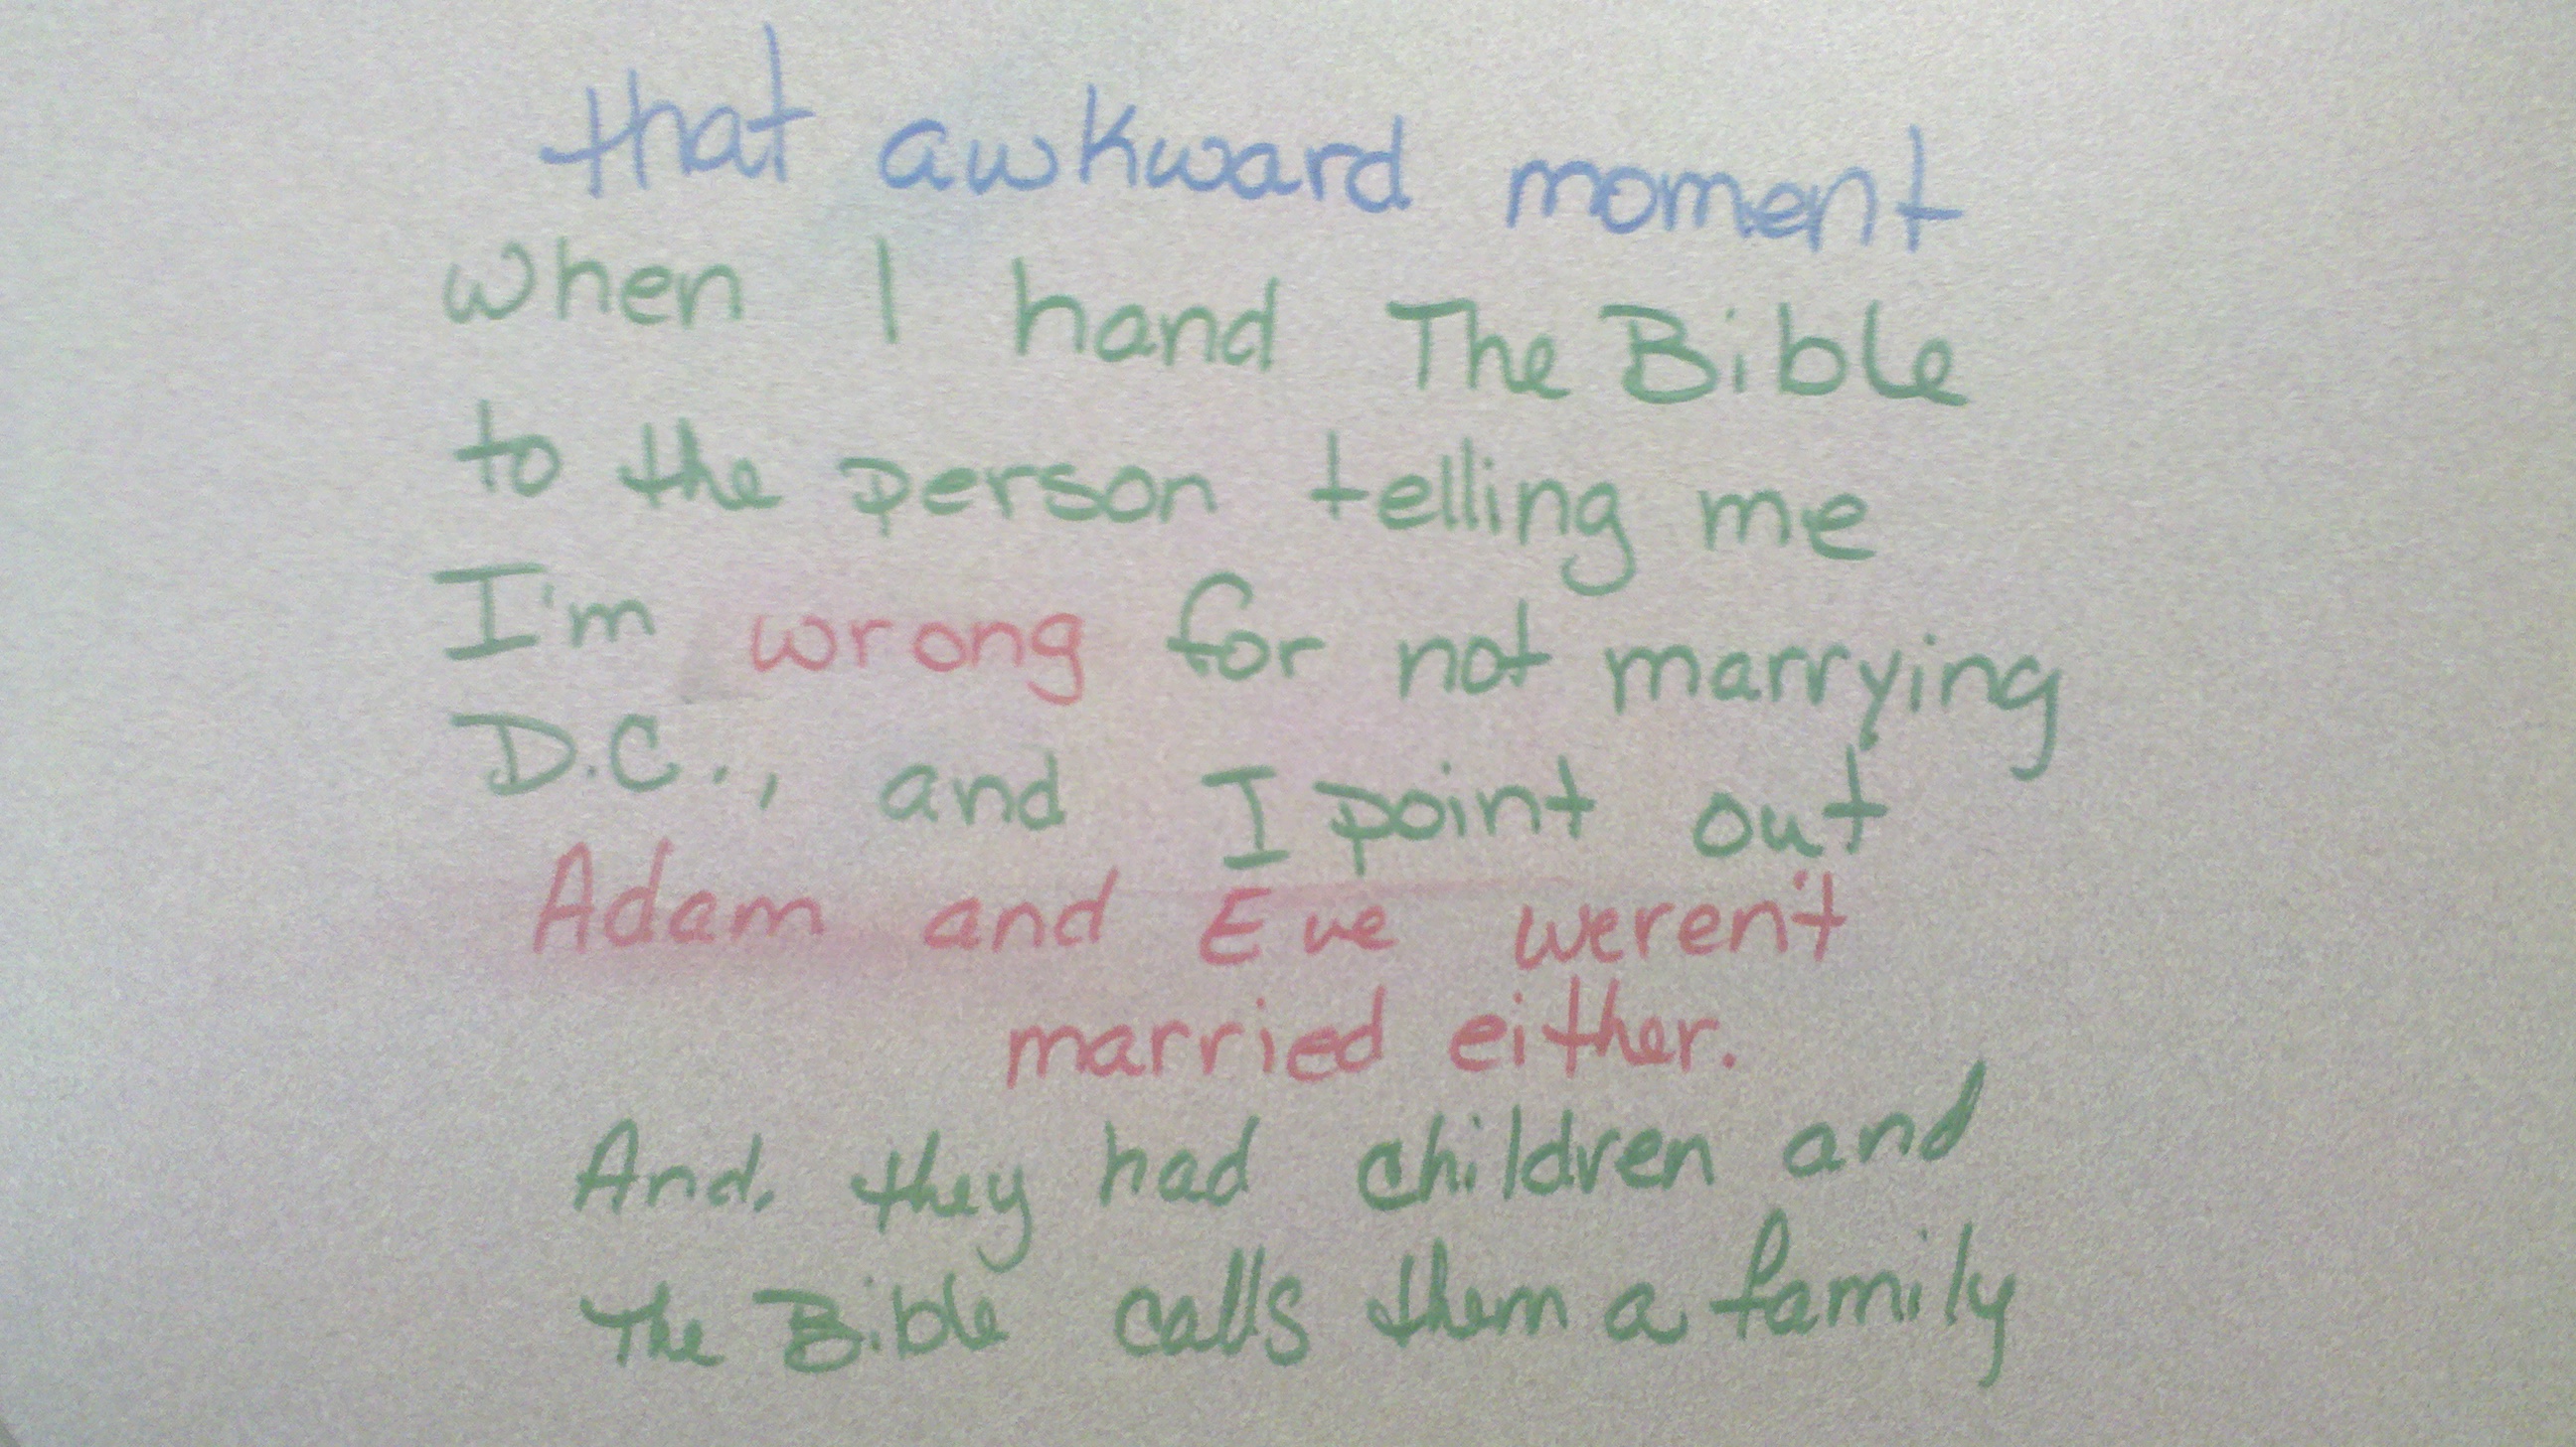 that awkward moment
when I hand The Bible
to the person telling me
I'm wrong for not marrying
D.C., and I point out
Adam and Eve weren't
married either.
And, they had children and
The Bible calls them a family